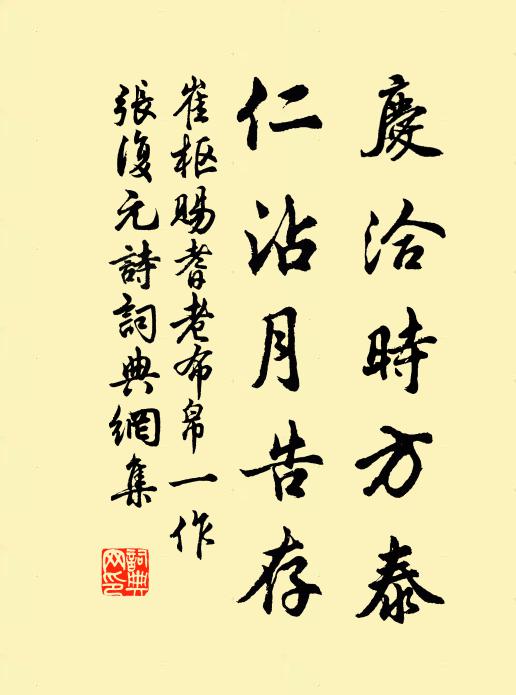 慶洽時方泰
仁沾月告存
崔枢賜耆老布帛一作
張復元詩詞典網集
詞典網印